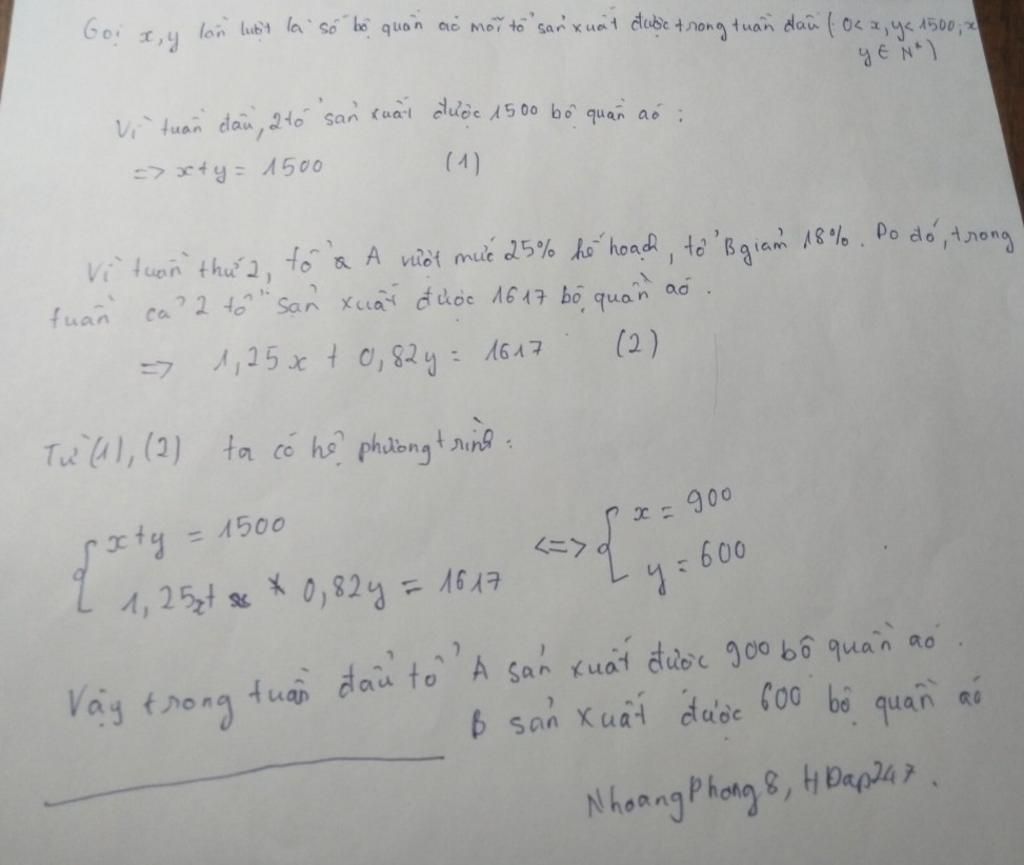 Gọi x, y lần lượt là số bộ quần áo mỗi tổ sản xuất được trong tuần đầu (0 < x, y < 1500; x
y ∈ N*)
Vì tuần đầu, 2 tổ sản xuất được 1500 bộ quần áo :
=> x+y = 1500 (1)
Vì tuần thứ 2, tổ A vượt mức 25% kế hoạch, tổ B giảm 18%. Do đó, trong
tuần cả 2 tổ sản xuất được 1617 bộ quần áo.
=> 1,25x + 0,82y = 1617 (2)
Từ (1), (2) ta có hệ phương trình:
{ x+y = 1500 <=> { x = 900
1,25x+ 0,82y = 1617 y = 600
Vậy trong tuần đầu tổ A sản xuất được 900 bộ quần áo.
B sản xuất được 600 bộ quần áo
NhoangPhong8, HDap247.